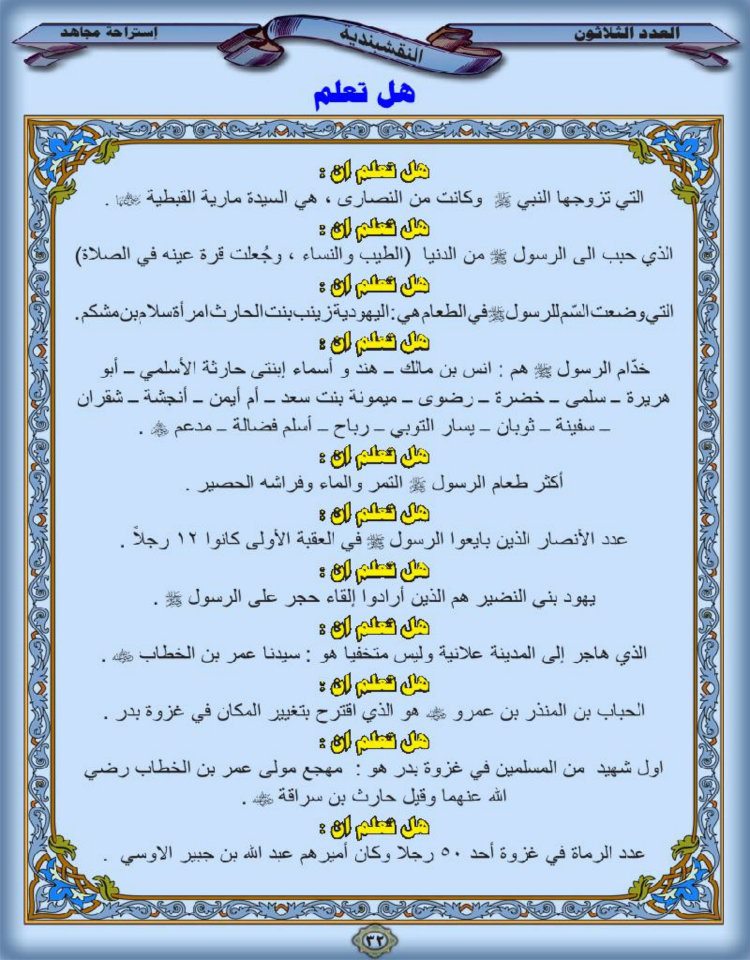 العدد الثلاثون
النقشبندية
إستراحة مجاهد
هل تعلم
هل تعلم إن :
التي تزوجها النبي ﷺ وكانت من النصارى ، هي السيدة مارية القبطية .
هل تعلم إن :
الذي حبب الى الرسول ﷺ من الدنيا (الطيب والنساء ، وجُعلت قرة عينه في الصلاة)
هل تعلم إن :
التي وضعت السّم للرسول ﷺ في الطعام هي : اليهودية زينب بنت الحارث امرأة سلام بن مشكم .
هل تعلم إن :
خدّام الرسول ﷺ هم : انس بن مالك – هند و أسماء إبنتى حارثة الأسلمي – أبو
هريرة – سلمى – خضرة – رضوى – ميمونة بنت سعد – أم أيمن – أنجشة – شقران
– سفينة – ثوبان – يسار التوبي – رباح – أسلم فضالة – مدعم .
هل تعلم إن :
أكثر طعام الرسول ﷺ التمر والماء وفراشه الحصير .
هل تعلم إن :
عدد الأنصار الذين بايعوا الرسول ﷺ في العقبة الأولى كانوا ١٢ رجلاً .
هل تعلم إن :
يهود بني النضير هم الذين أرادوا إلقاء حجر على الرسول ﷺ .
هل تعلم إن :
الذي هاجر إلى المدينة علانية وليس متخفيا هو : سيدنا عمر بن الخطاب .
هل تعلم إن :
الحباب بن المنذر بن عمرو هو الذي اقترح بتغيير المكان في غزوة بدر .
هل تعلم إن :
اول شهيد من المسلمين في غزوة بدر هو : مهجع مولى عمر بن الخطاب رضي
الله عنهما وقيل حارث بن سراقة .
هل تعلم إن :
عدد الرماة في غزوة أحد ٥٠ رجلا وكان أميرهم عبد الله بن جبير الاوسي .
٣٢